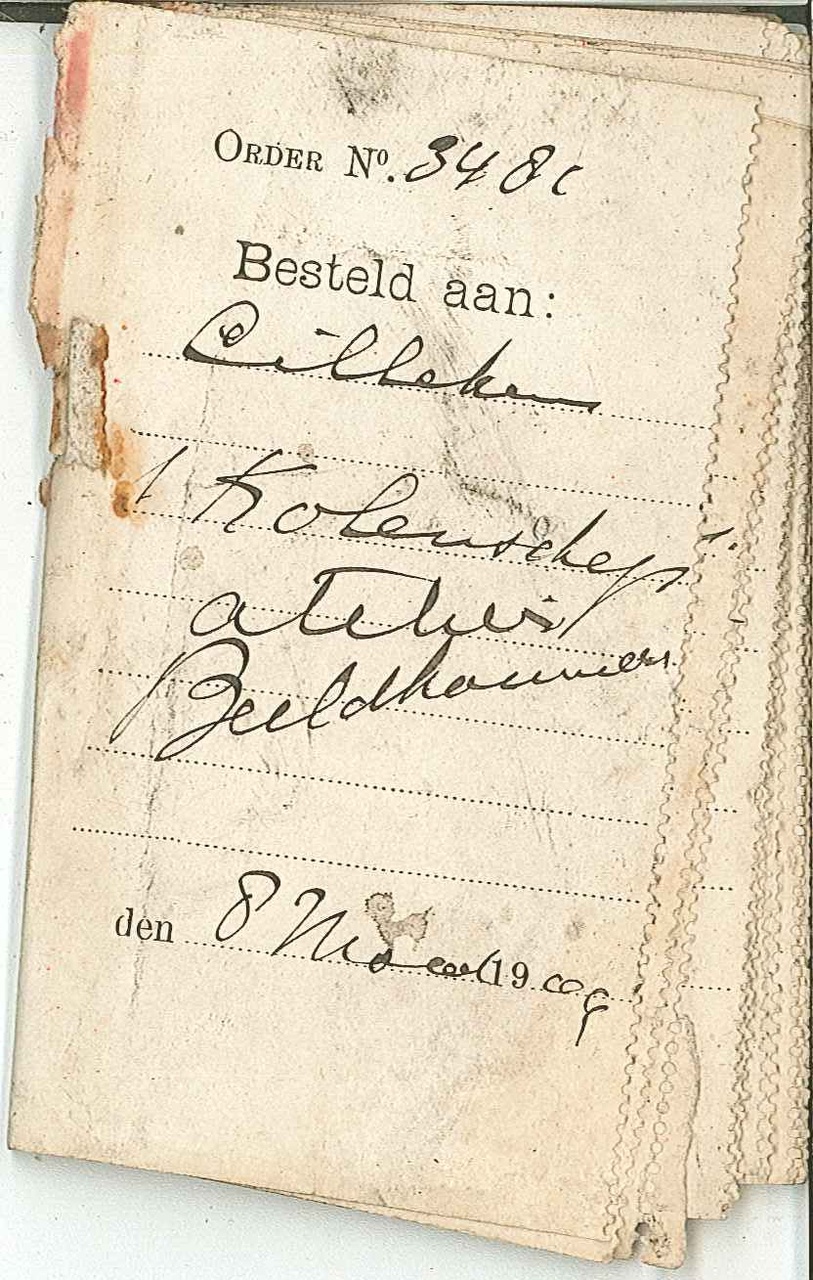 ORDER Nº. 3481
Besteld aan:
Cilleken
1 Kolenschep
atelier
Beeldhouwers
den 8 Maart 1909